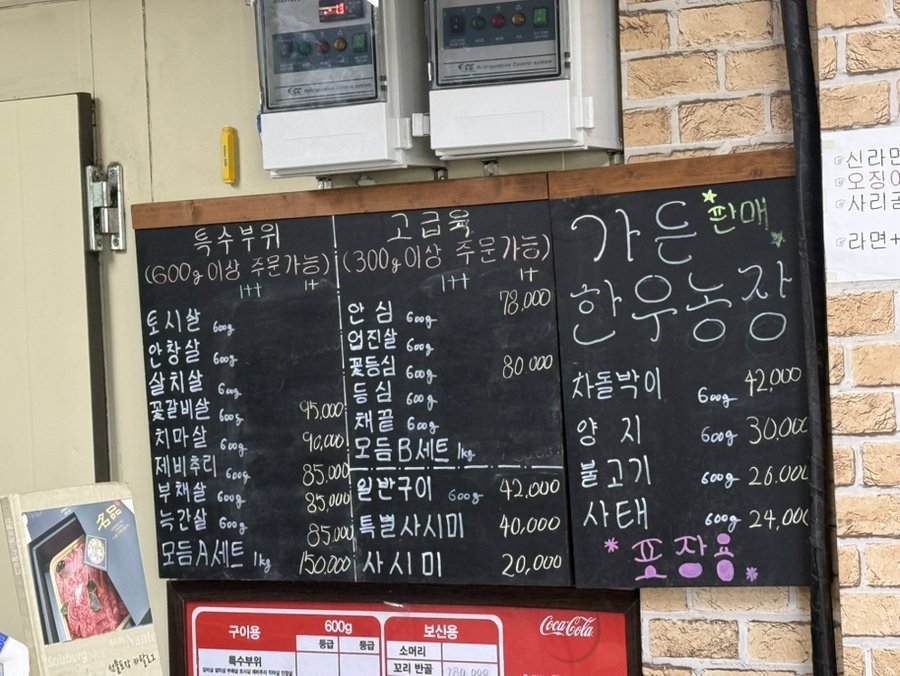 Refrigeration Control system
Refrigeration Control system
특수부위
(600g이상 주문가능)
1++ 1+
토시살 600g
안창살 600g
살치살 600g
꽃갈비살 600g 95,000
치마살 600g 90,000
제비추리 600g 85,000
부채살 600g 85,000
늑간살 600g 85,000
모듬A세트 1kg 150,000
고급육
(300g이상 주문가능)
1++ 1+
78,000
안심 600g
업진살 600g
꽃등심 600g 80,000
등심 600g
채끝 600g
모듬B세트 1kg
일반구이 600g 42,000
특별사시미 40,000
사시미 20,000
가든 판매
한우농장
차돌박이 600g 42,000
양지 600g 30,000
불고기 600g 26,000
사태 600g 24,000
*포장용*
☞신라면
☞오징어
☞사리곰
☞라면+
名品
구이용 600g
등급 등급
특수부위
보신용
소머리
꼬리 반골
Coca-Cola